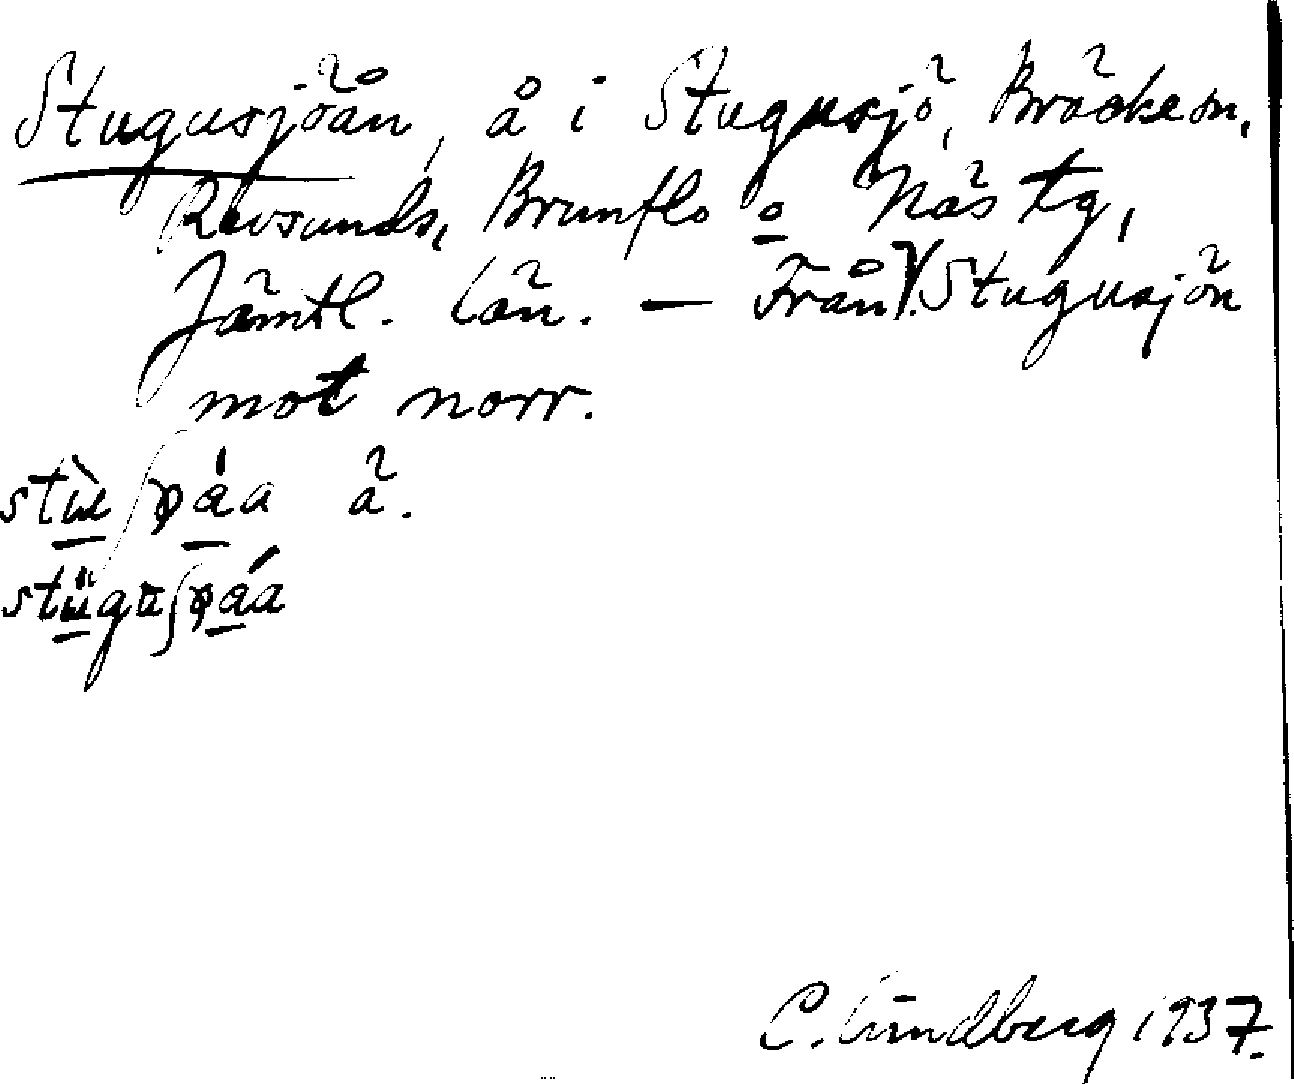 Stugusjöån, å i Stugusjö, Bräcke sn,
Revsunds, Brunflo o Näs tg,
Jämtl. län. — Från V. Stugusjön
mot norr.
C. Lindberg 1937.